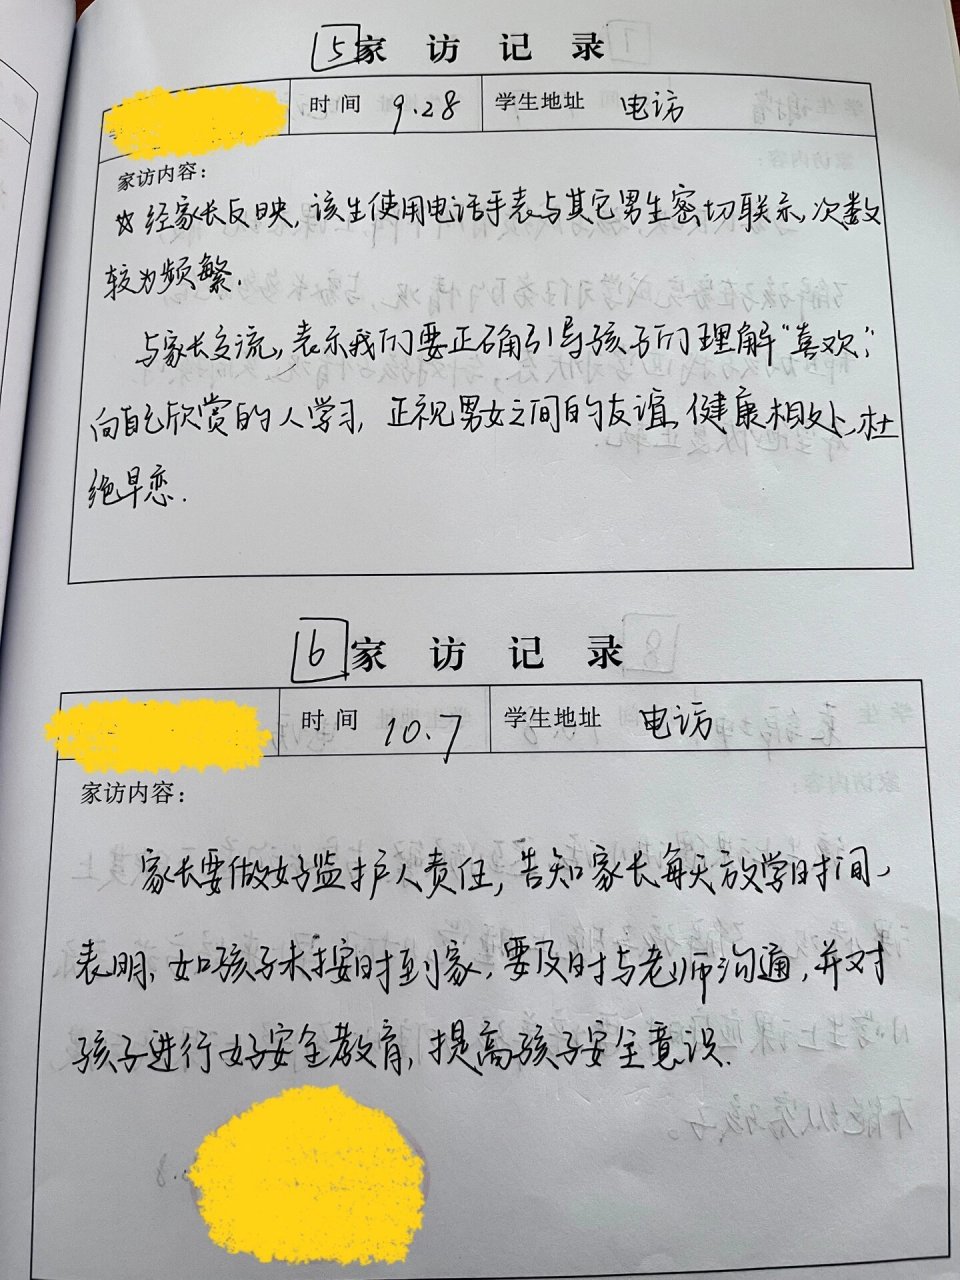 5 家访记录
时间 9.28 学生地址 电访
家访内容:
☆经家长反映,该生使用电话手表与其它男生密切联示,次数
较为频繁.
与家长交流,表示我们要正确引导孩子们理解“喜欢”,
向自己欣赏的人学习,正视男女之间的友谊,健康相处,杜
绝早恋.
6 家访记录
时间 10.7 学生地址 电访
家访内容:
家长要做好监护人责任,告知家长每天放学时间,
表明,如孩子未按时到家,要及时与老师沟通,并对
孩子进行好安全教育,提高孩子安全意识.